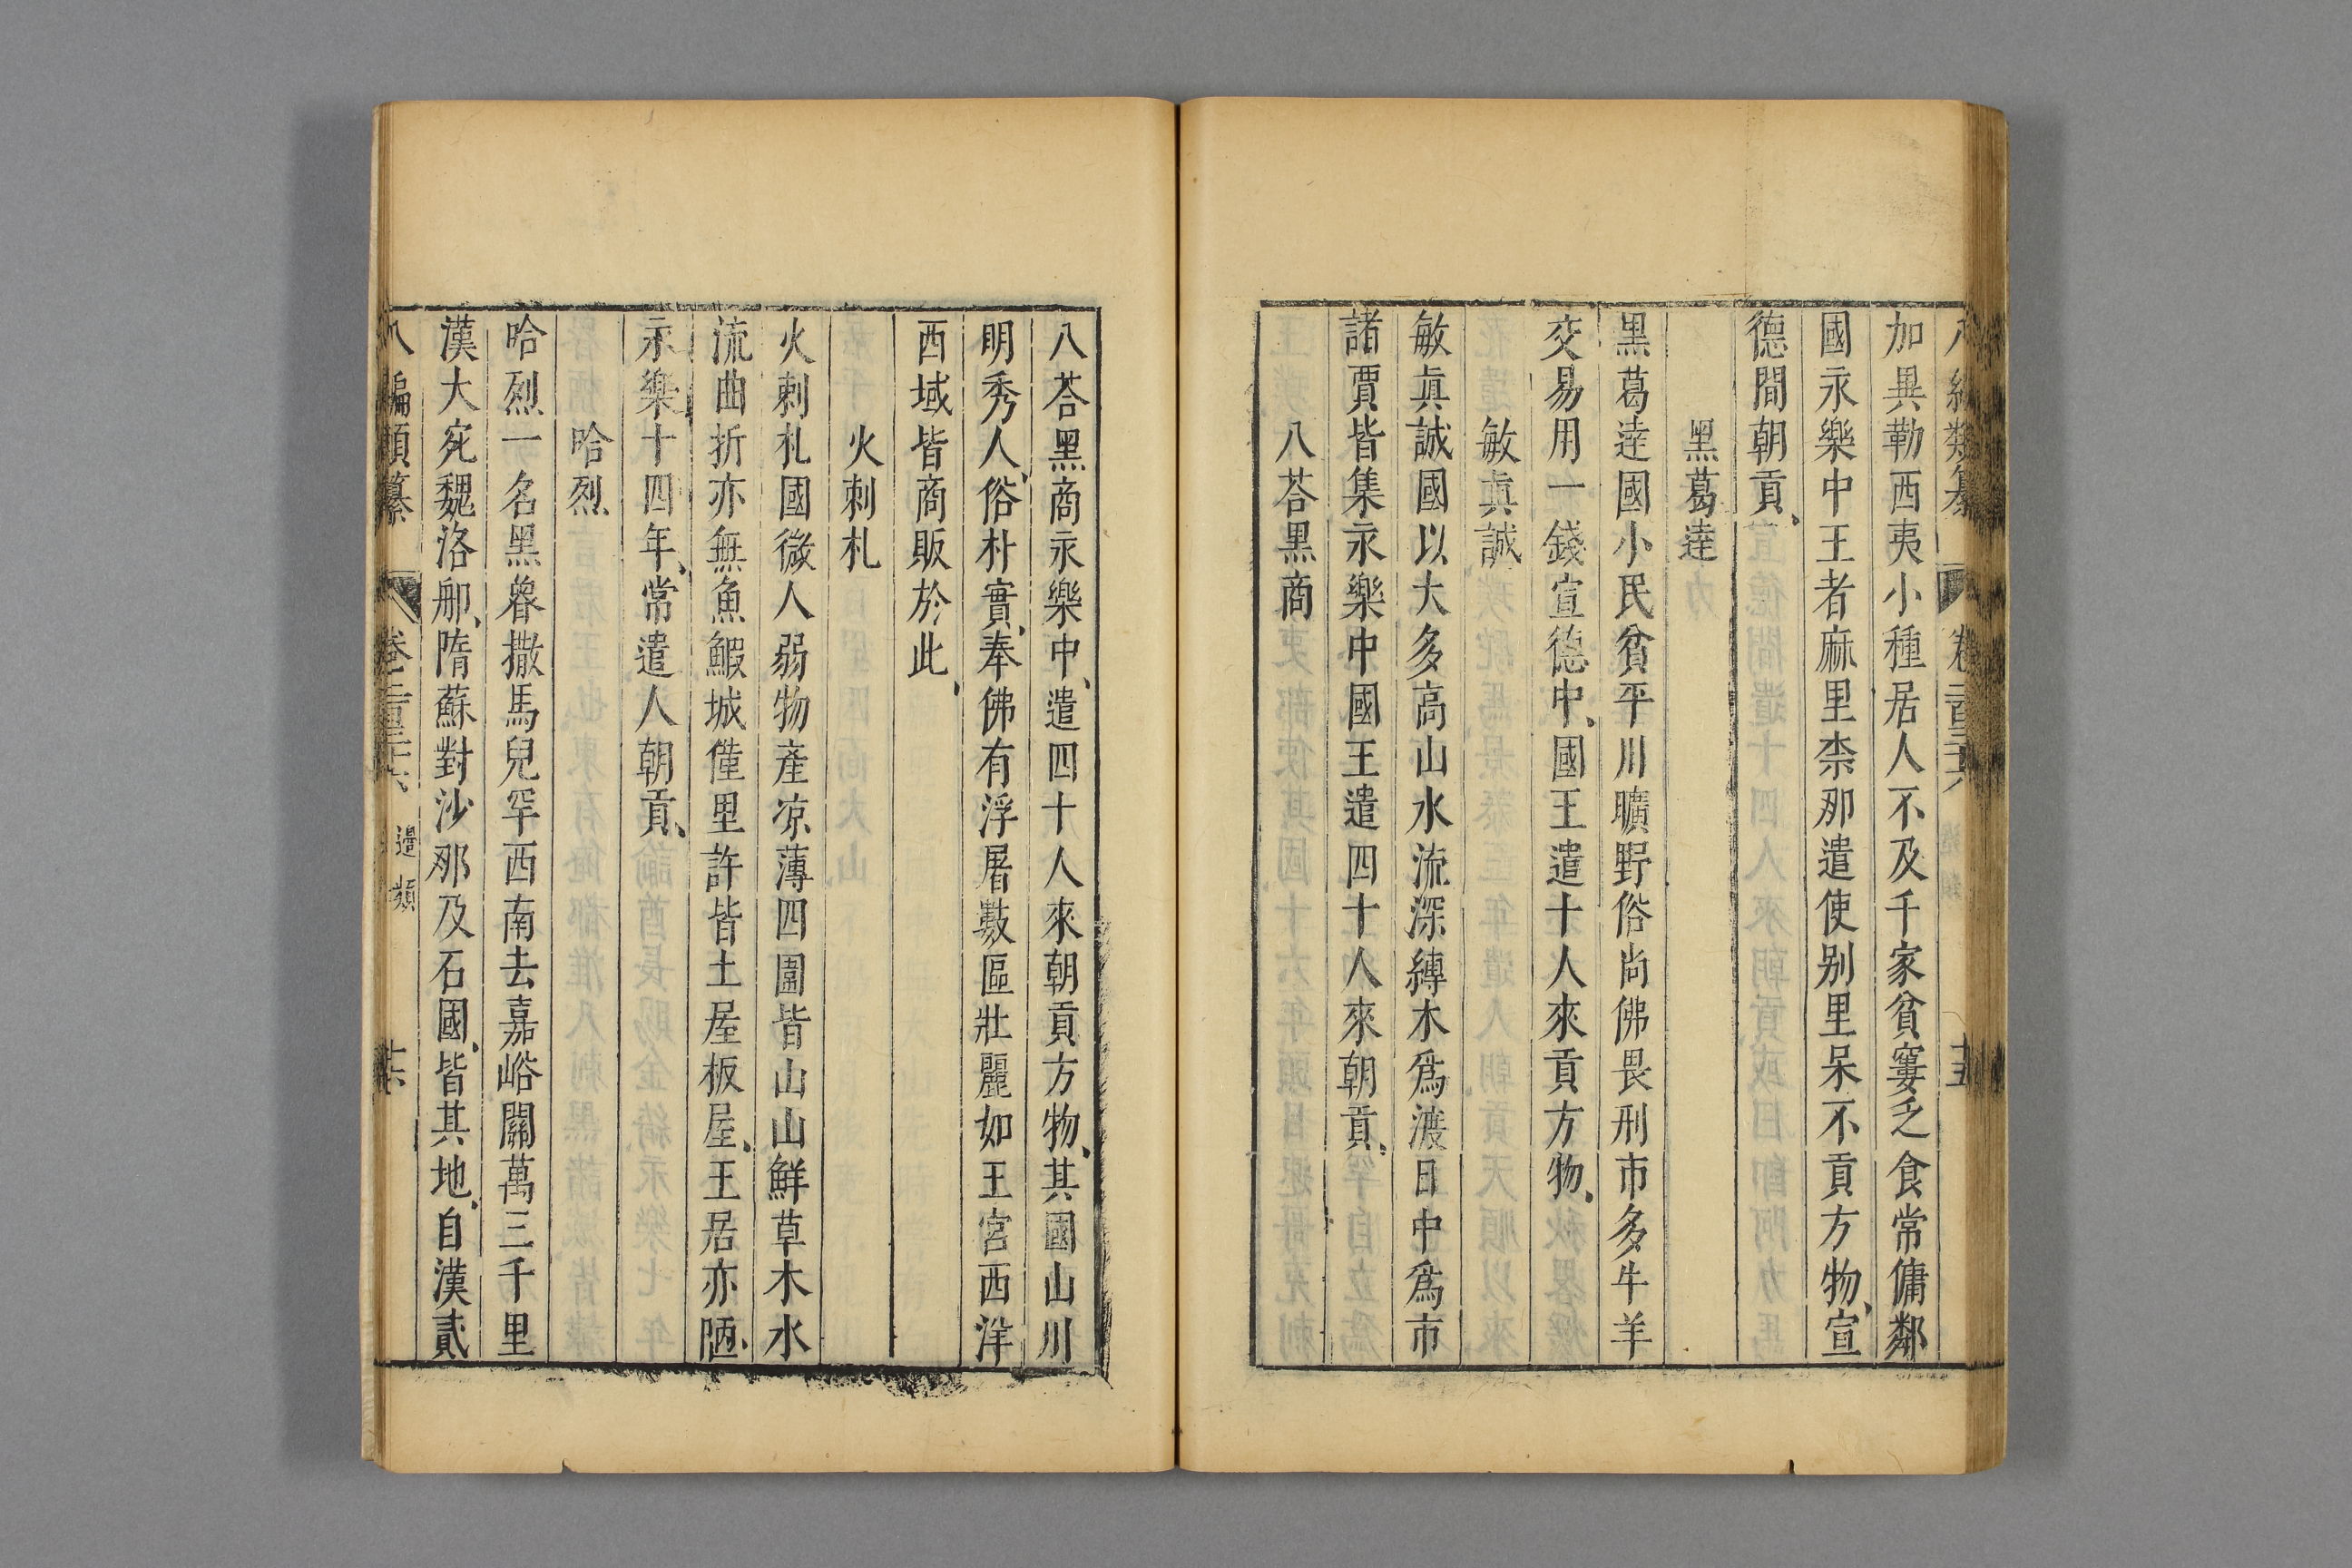 加異勒西夷小種居人不及千家貧窶乏食常傭鄰
國永樂中王者麻里柰那遣使别里呆不貢方物宣
德間朝貢
黑葛逹
黑葛逹國小民貧平川曠野俗尚佛畏刑市多牛羊
交易用一錢宣德中國王遣十人來貢方物
敏眞誠
敏眞誠國以大多高山水流深縛木爲渡日中爲市
諸賈皆集永樂中國王遣四十人來朝貢
八荅黑商
八荅黑商永樂中遣四十人來朝貢方物其國山川
明秀人俗朴實奉佛有浮屠數區壯麗如王宮西洋
西域皆商販於此
火刺札
火刺札國微人弱物產凉薄四圍皆山山鮮草木水
流曲折亦無魚鰕城僅里許皆土屋板屋王居亦陋
永樂十四年常遣人朝貢
哈烈
哈烈一名黑魯撒馬兒罕西南去嘉峪關萬三千里
漢大宛魏洛那隋蘇對沙那及石國皆其地自漢貳
八編類纂 卷二百三十六 邊類 十六